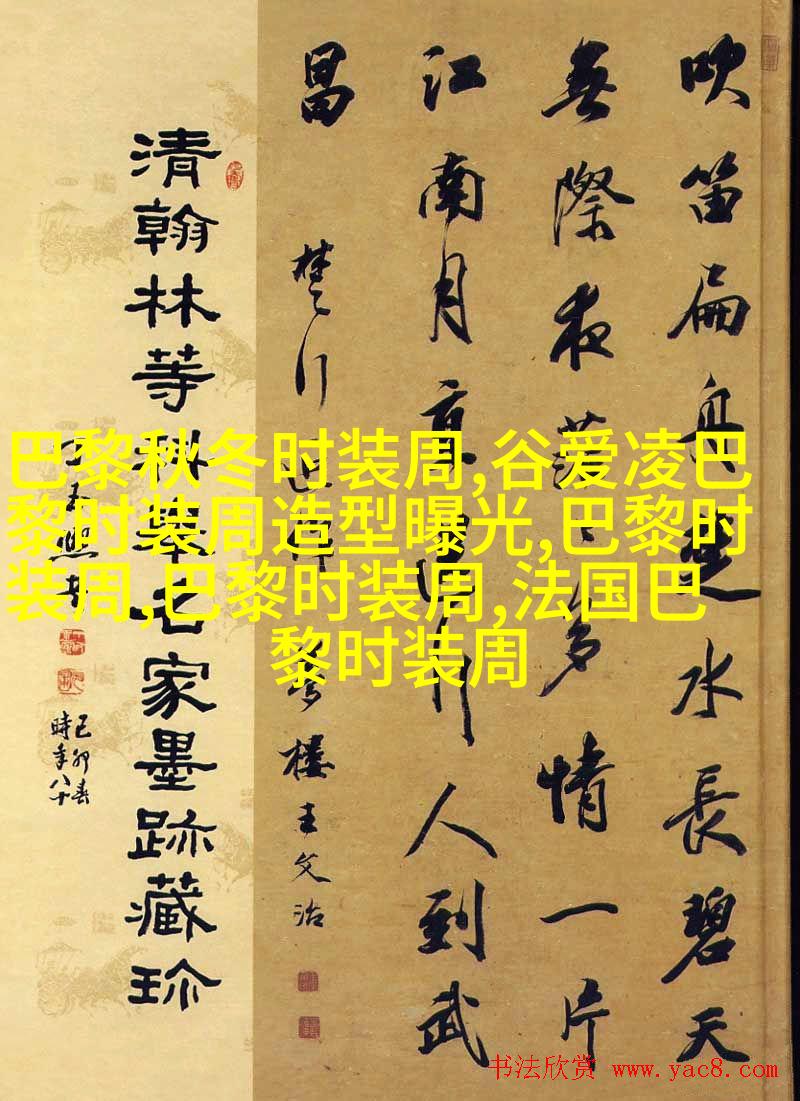 巴黎秋冬时装周,谷爱凌巴
黎时装周造型曝光,巴黎时
装周,巴黎时装周,法国巴
黎时装周
吹笛扁舟楚水長碧天
無際夜茫多情一片
江南月行人到武
昌
楚行夢樓王文治
清翰林等科舉名家墨跡藏珍
己卯春
時年八十
书法欣赏 www.yac8.com